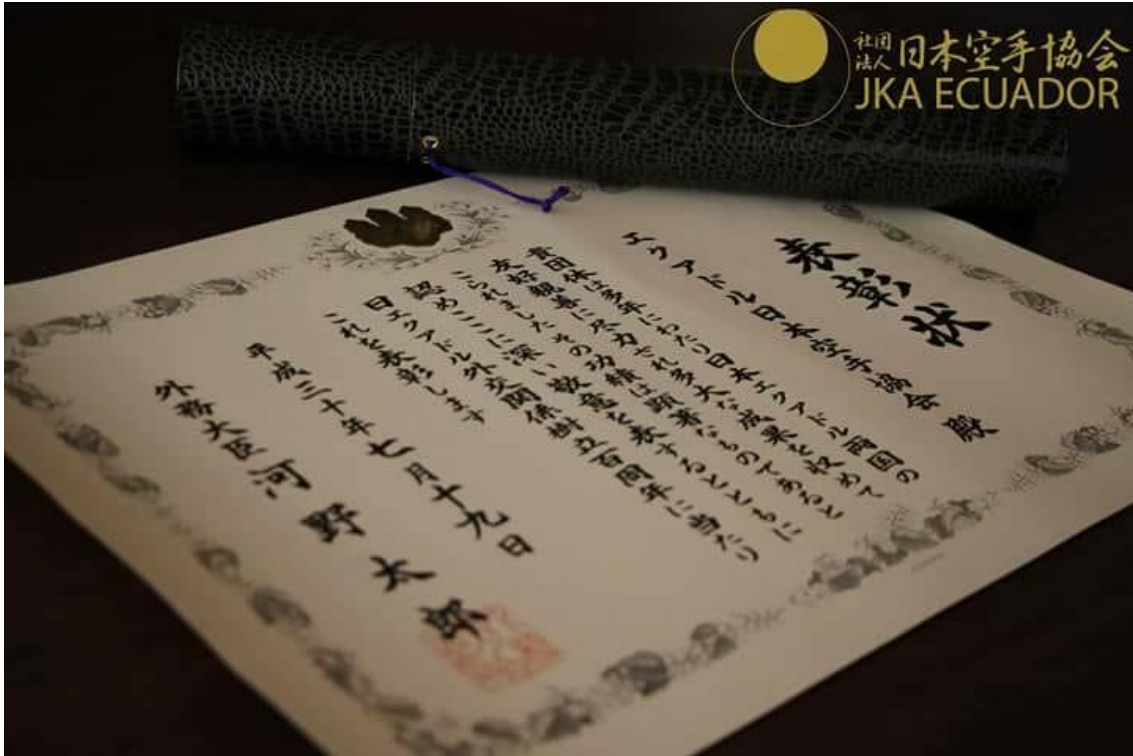 社団
法人
日本空手協会
JKA ECUADOR
表彰状
エクアドル日本空手協会 殿
貴団体は多年にわたり日本エクアドル両国の
友好親善に尽力され多大な成果を収めて
こられましたその功績は顕著なものであると
認めここに深い敬意を表するとともに
日エクアドル外交関係樹立百周年に当たり
これを表彰します
平成三十年七月十九日
外務大臣 河野太郎